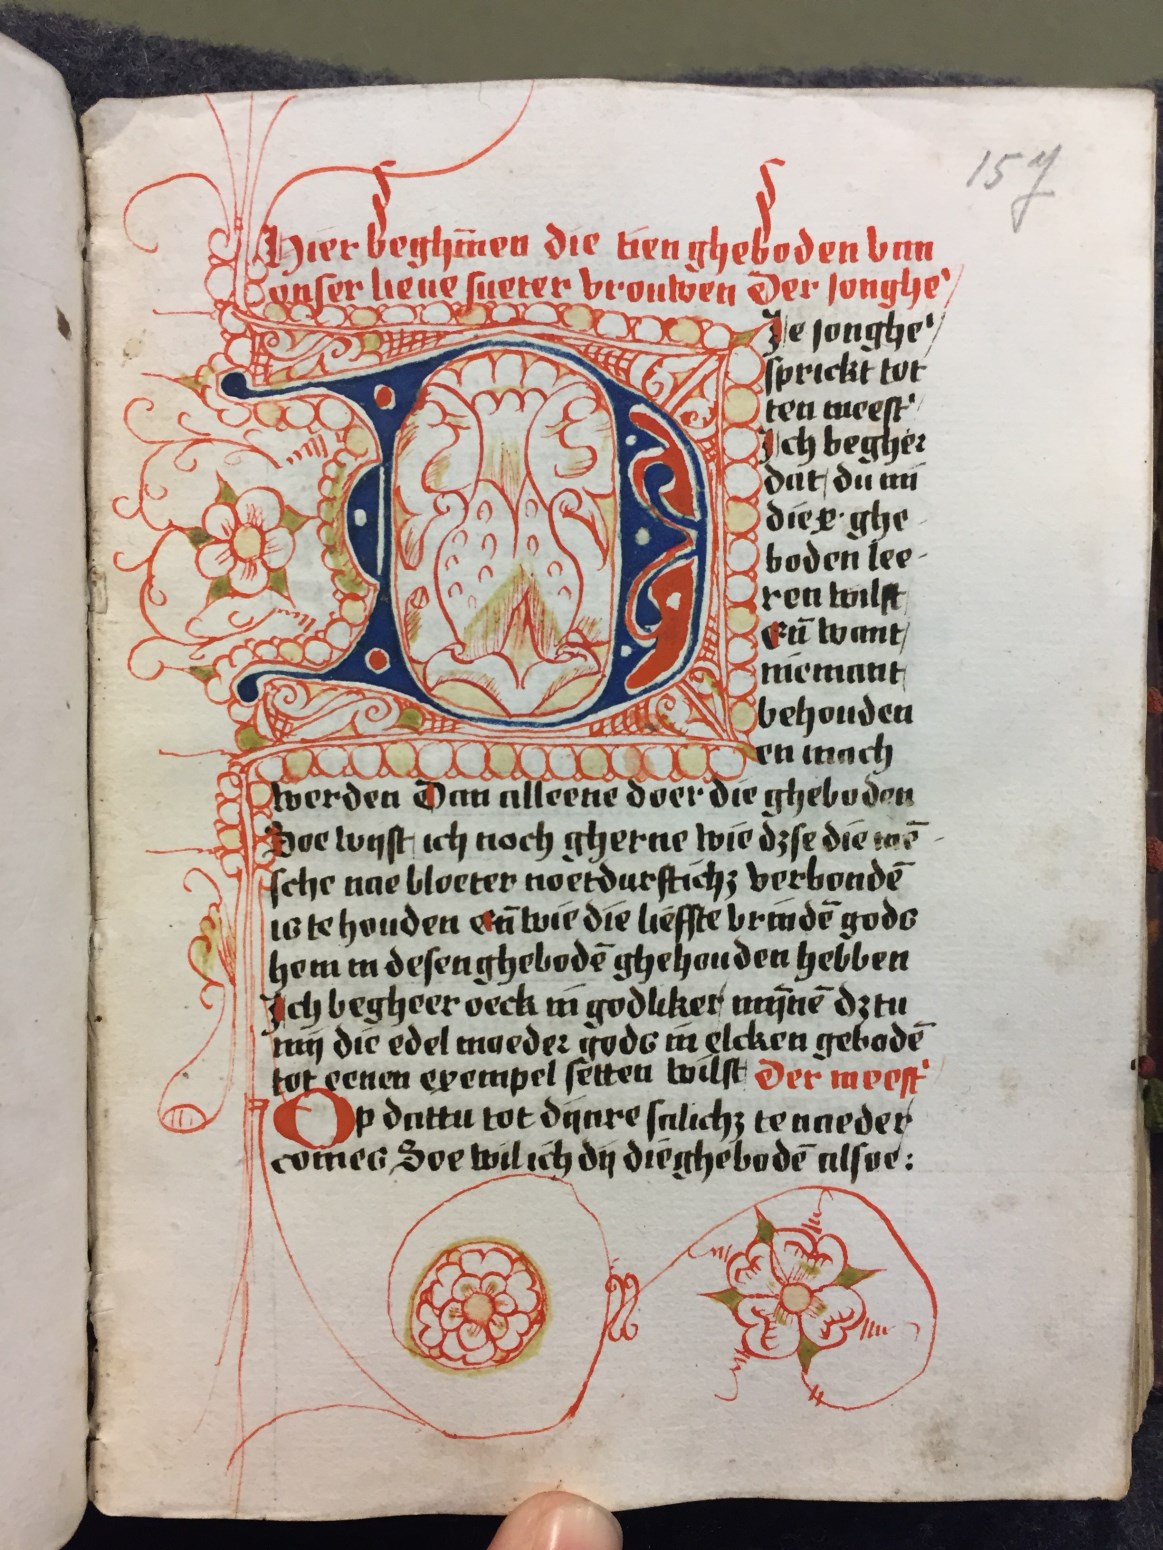 157
Hier beghīnen die tien gheboden van
onser lieue sueter vrouwen Der jonghe'
Die jonghe'
sprickt tot
ten meest'
Ich begher
dat du mi
die x· ghe
boden lee-
ren wilst
eñ want
niemant
behouden
en mach
werden Dan alleene doer die gheboden
Soe wijst ich noch gherne wie dʒse die mē-
sche nae bloeter noetdurftichʒ verbondē
is te houden eñ wie die lieffte vrindē gods
hem in desen ghebodē ghehouden hebben
Ich begheer oeck in godliker mȳnē dʒ tu
mij die edel moeder gods in elcken gebodē
tot eenen exempel setten wilst Der meest'
Op dattu tot dijnre salichʒ te naeder
comes Soe wil ich dij die ghebodē alsoe: